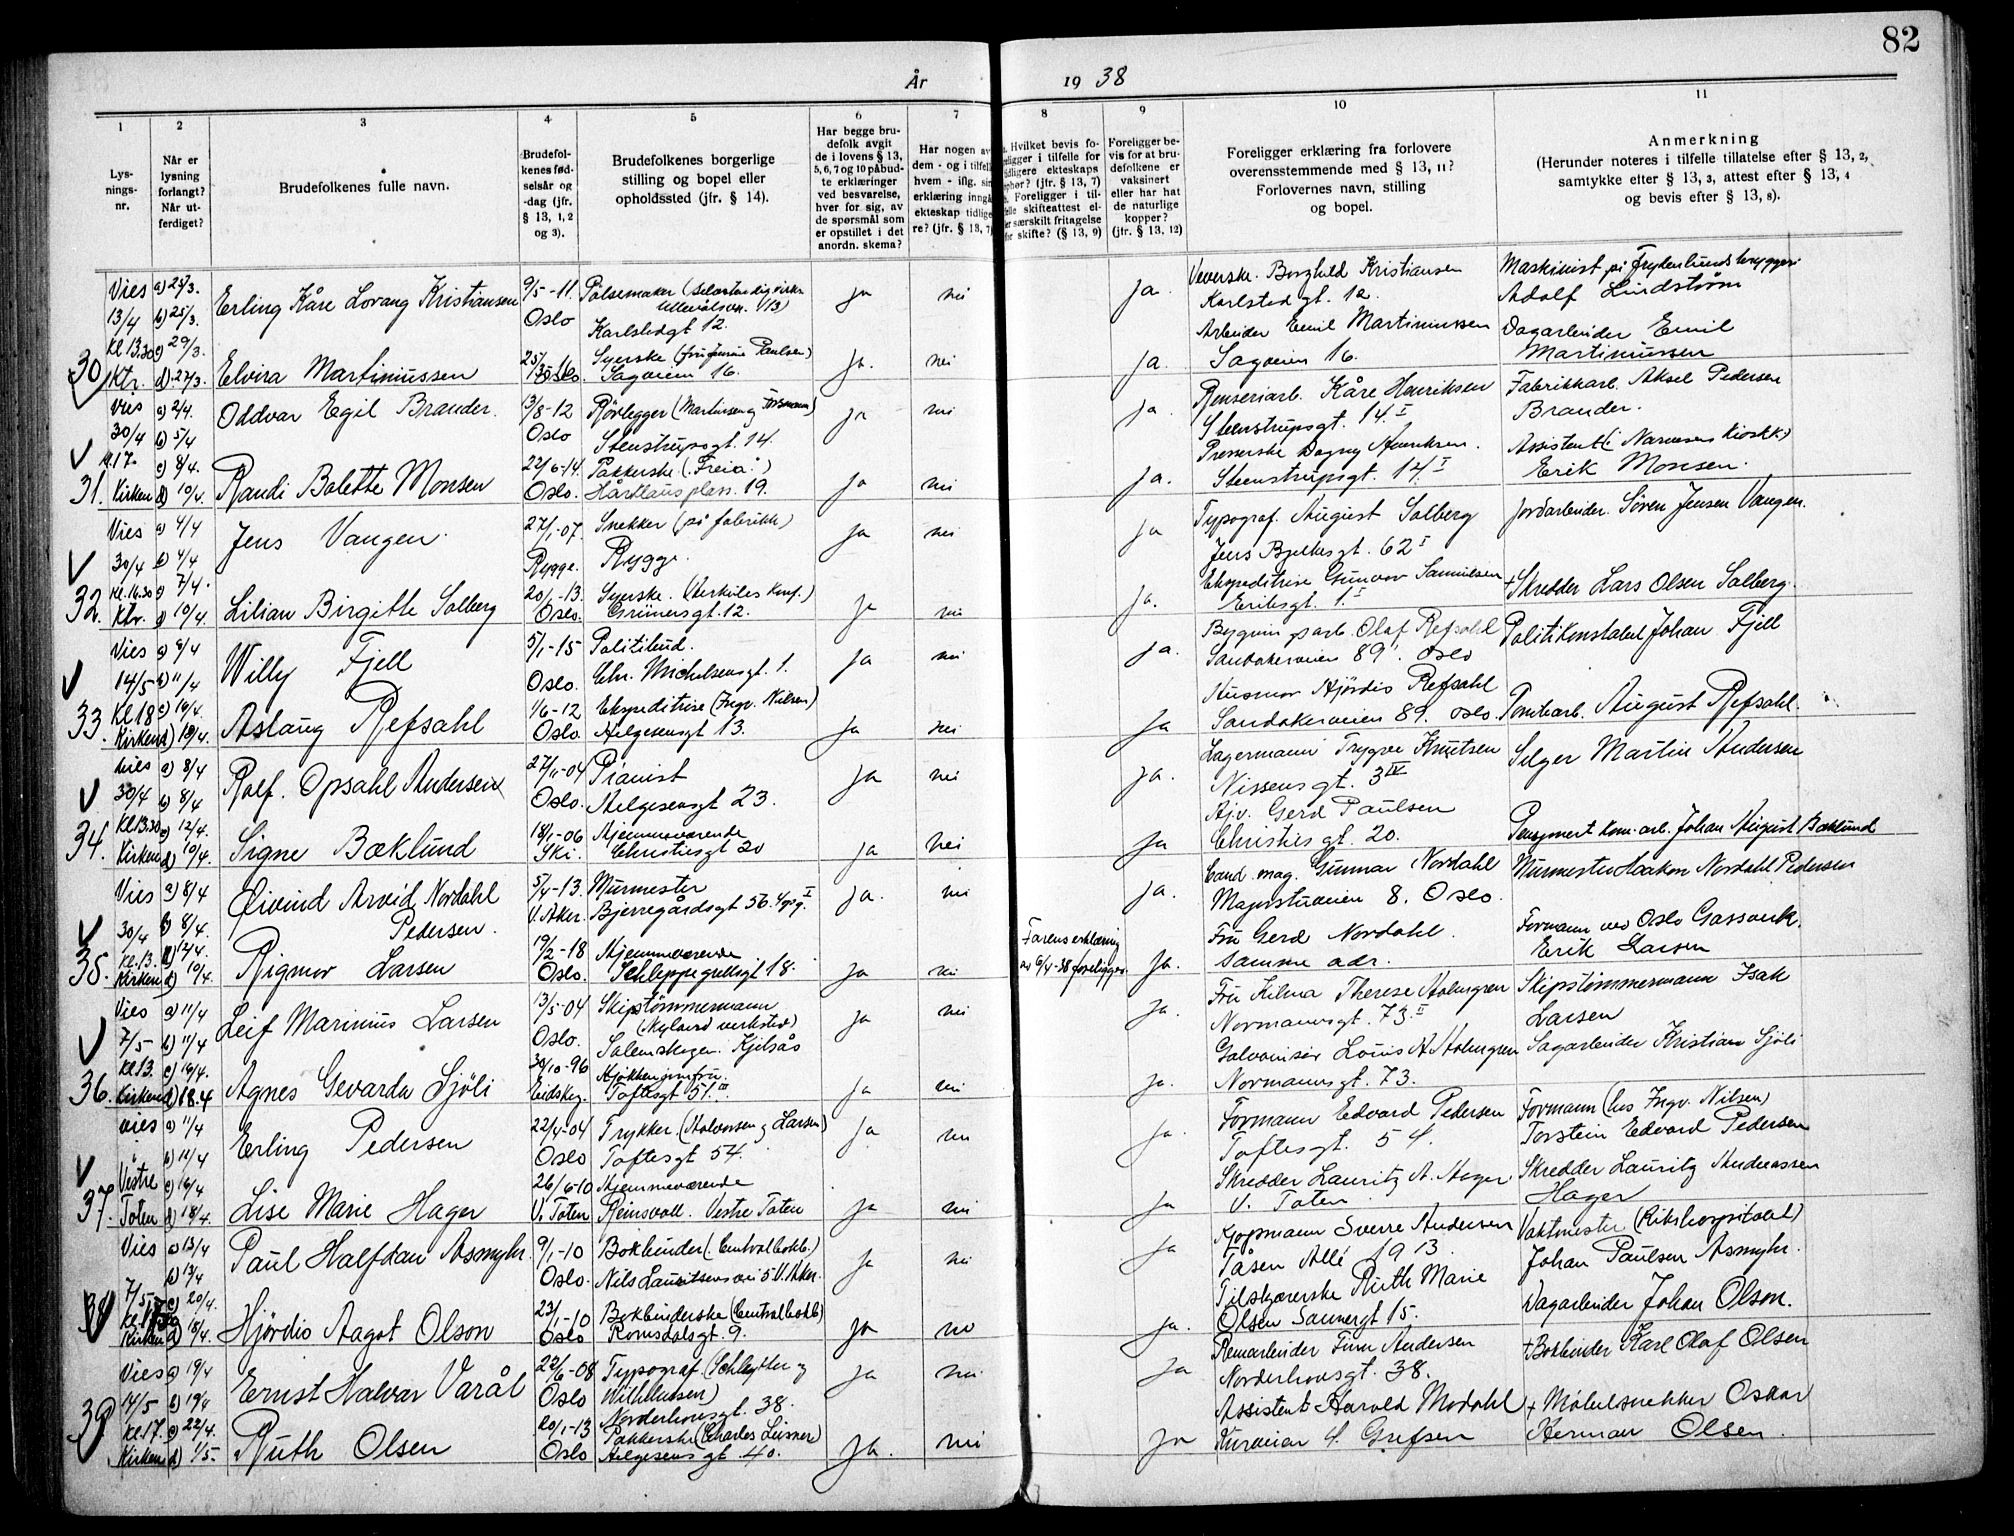 82
År 19 38
1
2
3
4
5
6
7
8
9
10
11
Lys-
nings-
nr.
Når er
lysning
forlangt?
Når ut-
ferdiget?
Brudefolkenes fulle navn.
Brudefol-
kenes fød-
selsår og
-dag (jfr.
§ 13, 1, 2
og 3).
Brudefolkenes borgerlige
stilling og bopel eller
opholdssted (jfr. § 14).
Har begge bru-
defolk avgit
de i lovens § 13,
5, 6, 7 og 10 påbud-
te erklæringer
ved besvarelse,
hver for sig, av
de spørsmål som
er opstillet i det
anordn. skema?
Har nogen av
dem - og i tilfelle
hvem - iflg. sin
erklæring inngå
ekteskap tidlige
re? (jfr. § 13, 7)
Hvilket bevis fo-
religger i tilfelle for
tidligere ekteskaps
ophør? (jfr. § 13, 7)
Foreligger i til-
felle skifteattest el-
ler særskilt fritagelse
for skifte? (§ 13, 9)
Foreligger be-
vis for at bru-
defolkene er
vaksinert
eller har hat
de naturlige
kopper?
(jfr. § 13, 12)
Foreligger erklæring fra forlovere
overensstemmende med § 13, 11?
Forlovernes navn, stilling
og bopel.
Anmerkning
(Herunder noteres i tilfelle tillatelse efter § 13, 2,
samtykke efter § 13, 3, attest efter § 13, 4
og bevis efter § 13, 8).
30
Vies
13/4
Kl 13.30
Ktr.
a) 25/3.
b) 25/3.
29/3.
d) 27/3.
Erling Kåre Lorang Kristiansen
9/5-11.
Oslo
Pølsemaker
Karlstadgt 12.
ja
nei
ja.
Veverske. Borghild Kristiansen
Karlstad gt. 12.
Maskinist på Frydenlunds bryggeri
Adolf Lindstrøm
Elvira Martiniussen
Oslo.
Syerske
Sagveien 16.
ja.
nei
ja.
Arbeider Emil Martiniussen
Sagveien 16.
Dagarbeider Emil
Martiniussen
31.
Vies
30/4
kl.17.
Kirken
a) 2/4.
b) 5/4
c) 8/4.
d) 10/4.
Oddvar Egil Brander.
3/8-12
Oslo
Rørlegger
Stenstrupsgt. 14.
ja
nei
ja.
Renseriarb. Kåre Henriksen
Stenstrupsgt. 14 I
Fabrikkarb. Aksel Pedersen
Brander.
Randi Bolette Monsen
22/6-14.
Oslo.
Pakkerske ("Freia")
19.
ja
nei
ja.
Presserske Dagny Henriksen.
Stenstrupsgt. 14 I
Assistent
Erik Monsen.
32.
Vies
30/4
Kl. 16.30
Ktr.
a) 4/4
b) 4/4
7/4.
10/4.
Jens Vangen.
27/1-07.
Rygge.
Snekker (på fabrikk)
Rygge.
ja
nei
ja
Typograf. August Solberg
Jens Bjelkesgt. 62 I
Jordarbeider. Sören Jensen Vangen.
Lilian Birgitte Solberg
20/1-13.
Oslo.
Syerske. (Herkules Konf.)
Grünersgt. 12.
ja
nei
ja.
Ekspeditrise Gunvor Samuelsen
Eriksgt. 1. I
+Skredder Lars Olsen Solberg.
33.
Vies
14/5
Kl 18
Kirken
a) 8/4
b) 11/4
c) 16/4.
d) 18/4.
Willy Fjell
5/1-15
Oslo.
Politibud.
Chr. Michelsensgt. 1.
ja
nei
ja.
Olaf Refsahl
Sandakerveien 89. Oslo
Politikonstabel Johan Fjell
Aslaug Refsahl
1/6-12
Oslo.
Ekspeditrise (Ingv. Nilsen)
Helgesensgt 13.
ja
nei
ja
Husmor Hjördis Refsahl
Sandakerveien 89. Oslo.
Tomtearb. August Refsahl.
34.
Vies
30/4
Kl 13.30
Kirken
a) 8/4
b) 8/4
c) 12/4.
d) 10/4.
Rolf. Opsahl Andersen
27/11-04
Oslo.
Pianist
Helgesensgt 23.
ja
nei
ja.
Lagermann Trygve Knutsen
Nissensgt. 3 IV
Selger Martin Andersen
Signe Bæklund
18/1-06
Ski.
Hjemmeværende
Christiesgt 20
ja
nei
ja
Hjv. Gerd Paulsen
Christies gt. 20.
Pensjonert kom. arb. Johan August Bæklund
35.
Vies
30/4
Kl. 13.
Kirken
a) 8/4
b) 8/4.
12/4.
10/4.
Øivind Arvid Nordahl
Pedersen.
5/4-13.
V. Aker.
Murmester
Bjerregårdsgt 56. 4 opg. I
ja.
nei
ja.
Cand. mag. Gunnar Nordahl
Majorstuveien 8. Oslo.
Murmester Haakon Nordahl Pedersen
Rigmor Larsen
19/2-18
Oslo.
Hjemmeværende
Schleppegrellsgt 18.
ja
nei
Farens erklæring
av 6/4-38 foreligger.
ja.
Fru Gerd Nordahl.
samme adr.
Formann ved Oslo Gassverk.
Erik Larsen
36.
Vies
7/5
Kl 13.
Kirken
a) 11/4
b) 11/4
c) 16/4.
d) 18.4
Leif Marinius Larsen
13/5-04
Oslo.
Skipstømmermann
(Nylands verksted)
Solemskogen. Kjelsås
ja
nei
ja.
Fru Hilma Therese Holmgren
Normannsgt. 73. II
Skipstømmermann Isak
Larsen
Agnes Gevarda Sjöli
30/10-96
Eidskog.
Kjøkkenjomfru.
Toftesgt 51. III
ja
nei
ja.
Galvanisør Louis A Holmgren
Normannsgt. 73.
Sagarbeider Kristian Sjöli
37.
Vies
i
Vestre
Toten
a) 11/4
b) 11/4
c) 16/4
d) 18/4.
Erling Pedersen
22/4-04
Oslo
Trykker. (Halvorsen og Larsen)
Toftesgt 54.
ja
nei
ja.
Formann Edvard Pedersen
Toftesgt. 54.
Formann (hos Ingv. Nilsen)
Torstein Edvard Pedersen
Lise Marie Hager
26/6-10
V. Toten
Hjemmeværende
Reinsvoll. Vestre Toten
ja
nei
ja
Skredder Lauritz A. Hager.
V. Toten
Skredder Lauritz Andreassen
Hager
38
Vies
7/5
Kirken
a) 13/4
b) 13/4
c) 20/4.
d) 18/4.
Paul Halfdan Asmyhr.
9/1-10
Oslo.
Bokbinder (Centralbokb.)
Nils Lauritsens vei 5 V. Aker.
ja
nei
ja
Kjøpmann Sverre Andersen
Tåsen Allé 19 13.
Vaktmester (Rikshospitalet)
Johan Paulsen Asmyhr.
Hjördis Aagot Olson
23/1-10
Oslo
Bokbinderske (Centralbokb)
Romsdalsgt. 9.
ja
nei
ja.
Tilskjærerske Ruth Marie
Olsen Sannergt 15.
Dagarbeider Johan Olson.
39
Vies
14/5
Kl. 17.
Kirken
a) 19/4
b) 19/4
c) 22/4.
d) 1/5-
Ernst Halvar Varål
22/6-08
Oslo
Typograf. (Schlytter og
Wilhelmsen)
Norderhovsgt. 38.
ja
nei
ja
Remarbeider Finn Andersen
Norderhovsgt. 38.
+Bokbinder Karl Olaf Olsen
Ruth Olsen
20/1-13
Oslo
Pakkerske (Charles Leisner)
Helgesens gt. 40.
ja.
nei
ja
Assistent Harald Modahl
Kurveien 4. Grefsen
+ Møbelsnekker Oskar
Herman Olsen.